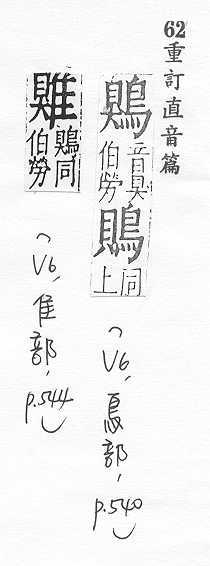 62 重訂直音篇
鶪
伯勞
鵙
同上
(V6, 鳥部, p.540)
鶪同
伯勞
(V6, 隹部, p.544)